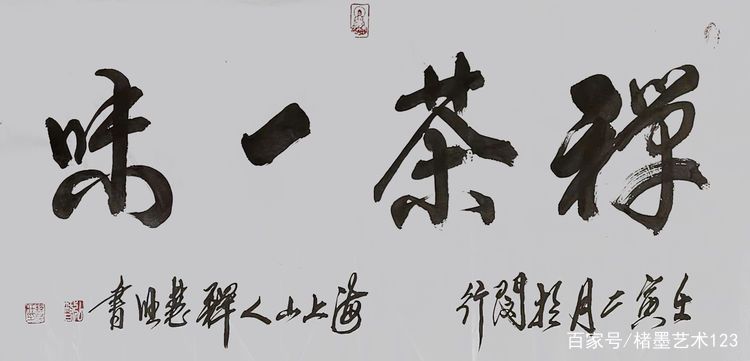 禪茶一味
壬寅二月於閔行
海上山人釋慧書
百家号/楮墨艺术123